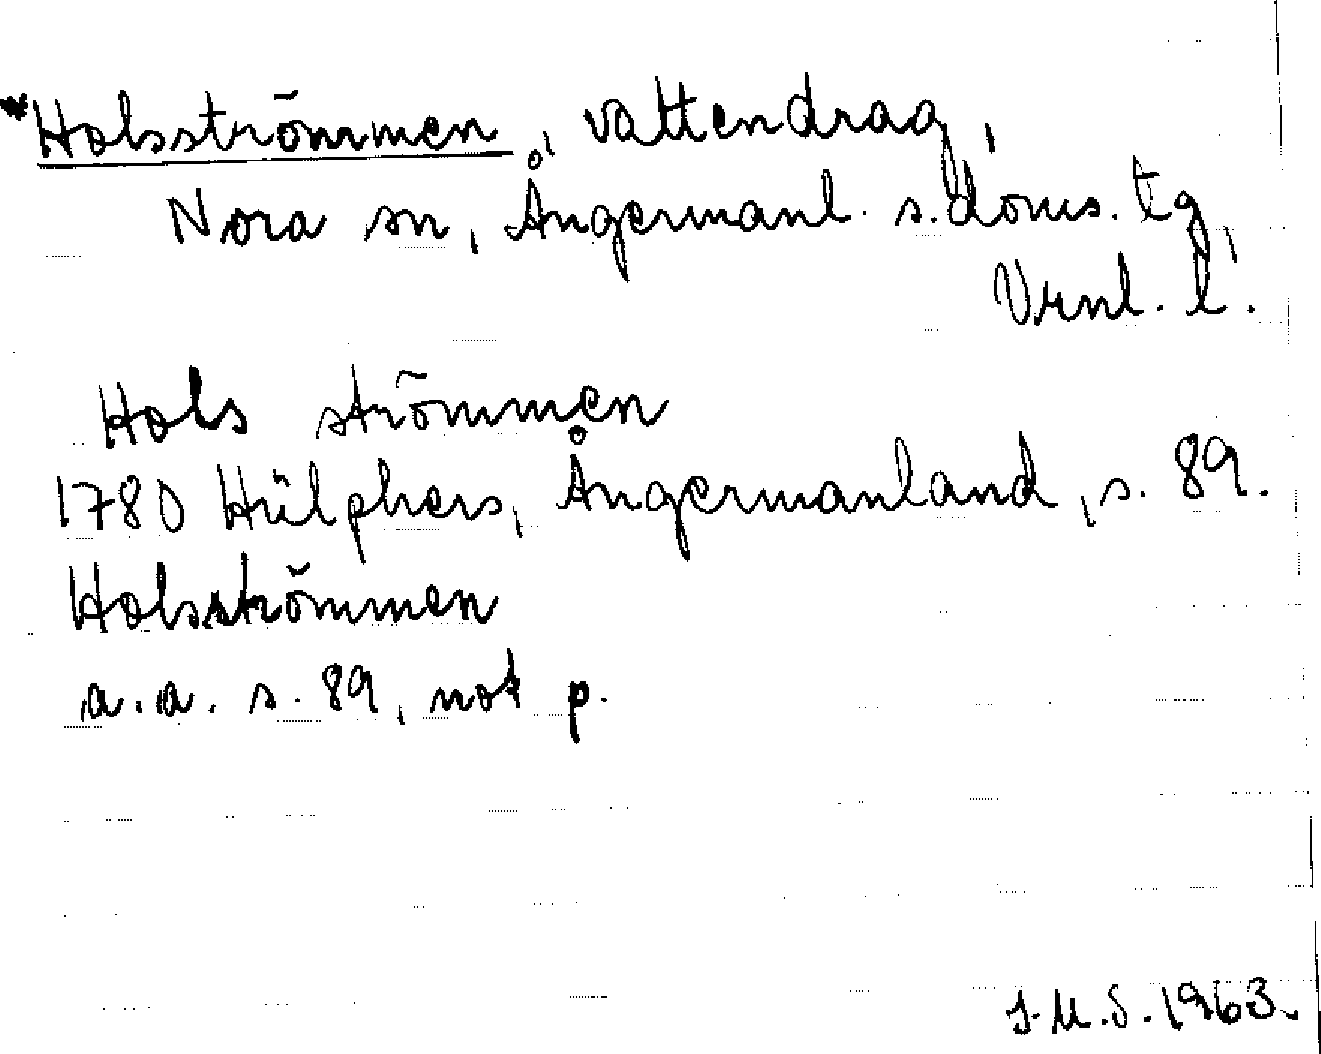 *Holsströmmen, vattendrag,
Nora sn, Ångermanl. s. doms. tg,
Vrnl. l.
Hols strömmen
1780 Hülphers, Ångermanland, s. 89.
Holsströmmen
a. a. s. 89, not p.
J.M.S. 1963.